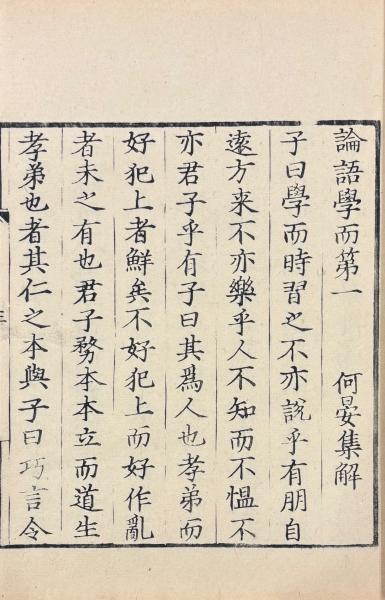 論語學而第一　何晏集解
子曰學而時習之不亦說乎有朋自
遠方来不亦樂乎人不知而不愠不
亦君子乎有子曰其爲人也孝弟而
好犯上者鮮矣不好犯上而好作亂
者未之有也君子務本本立而道生
孝弟也者其仁之本與子曰巧言令